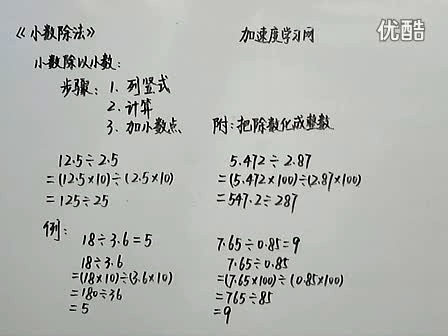 《小数除法》
加速度学习网
优酷
小数除以小数:
步骤: 1. 列竖式
2. 计算
3. 加小数点
附: 把除数化成整数
12.5÷2.5
=(12.5×10)÷(2.5×10)
=125÷25
5.472÷2.87
=(5.472×100)÷(2.87×100)
=547.2÷287
例:
18÷3.6=5
18÷3.6
=(18×10)÷(3.6×10)
=180÷36
=5
7.65÷0.85=9
7.65÷0.85
=(7.65×100)÷(0.85×100)
=765÷85
=9